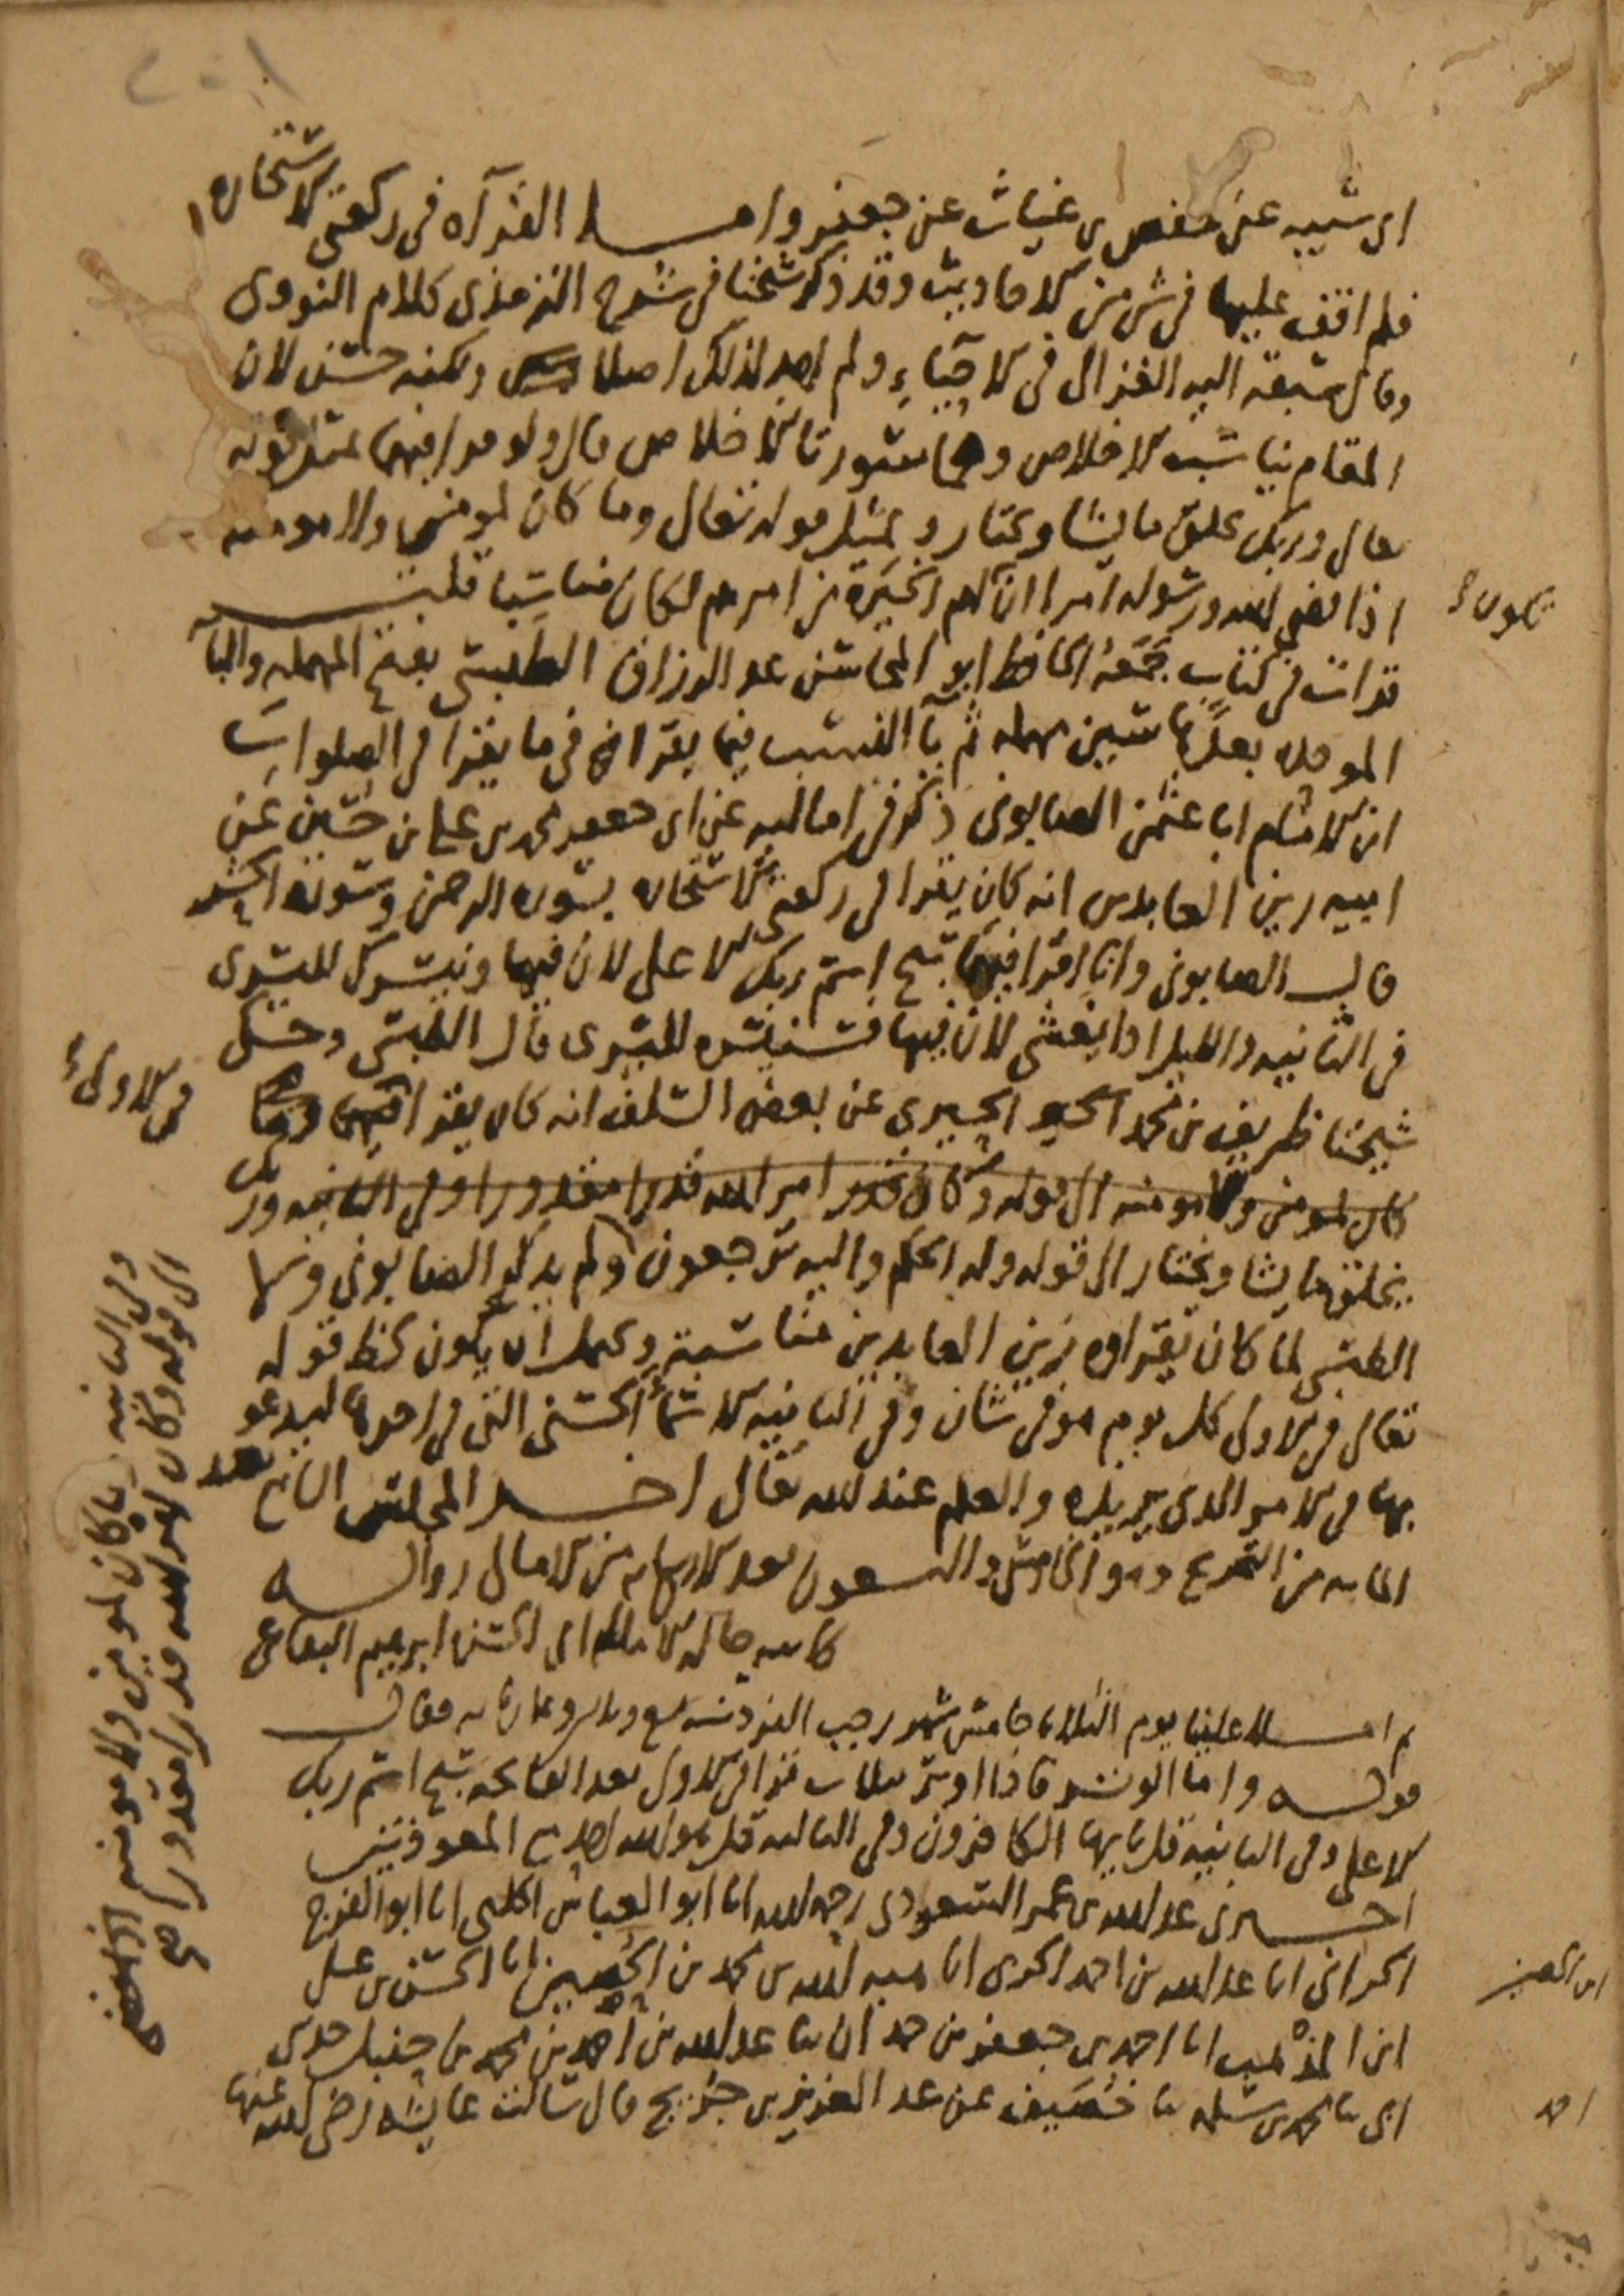 ابي شيبه عن حفص بن غياث عن جعفر واما القرآه في ركعتي الاستخاره
فلم اقف عليها في شي من الاحاديث وقد ذكر شيخنا في شرح الترمذي كلام النووي
وقال سبقه اليه الغزالي في الاحياء ولم اجد لذلك اصلا ولكنه حسن لان
المقام يناسب الاخلاص وهما سورتا الاخلاص قال ولو قرا فيهما بمثل قوله
تعالى وربك يخلق ما يشا ويختار وبمثل قوله تعالى وما كان لمومن ولا مومنه
اذا قضى الله ورسوله امرا ان لهم الخيرة من امرهم لكان مناسبا قلت
تكون
قرات في كتاب جمعه الحافظ ابو المحاسن عبد الرزاق الطبسي بفتح المهمله والبا
الموحده بعدها سين مهمله ثم يا النسب فيما يقرا في ما يقرا في الصلوات
ان الامام ابا عثمن الصابوني ذكر في اماليه عن ابي جعفر محمد بن علي بن حسين عن
ابيه زين العابدين انه كان يقرا في ركعتي الاستخاره بسوره الرحمن وسورة الحشر
قال الصابوني وانا اقرا فيهما سبح اسم ربك الاعلى لان فيها ونيسرك لليسرى
في الثانيه والليل اذا يغشى لان فيها فسنيسره لليسرى قال الطبسي وحكى
شيخنا ظريف بن محمد الحيري عن بعض السلف انه كان يقرا وما
في الاولى
كان لمومن ولا مومنه الى قوله وكان امر الله قدرا مقدورا وفي الثانيه وربك
يخلق ما يشا ويختار الى قوله وله الحكم واليه ترجعون ولم يذكر الصابوني ولا
الطبسي لما كان يقراه زين العابدين مناسبة ويحتمل ان يكون لحظ قوله
تعالى في الاولى كل يوم هو في شان وفي الثانيه الاسماء الحسنى التي في اخرها ليدعو
بها في الامر الذي يريده والعلم عند الله تعالى اخر المجلس السابع بعد
المايه من التخريج وهو الخامس والتسعون بعد الاربعمايه من الامالي روايـه
كاتبه الامالي ابي الحسن ابرهيم البقاعي
ثم املا علينا يوم الثلاثا خامس شهر رجب الفرد سنه وثمانمايه فقال
قولـه واما الوتر فاذا اوتر بثلاث قرا في الاولى بعد الفاتحه سبح اسم ربك
الاعلى وفي الثانيه قل يايها الكافرون وفي الثالثه قل هو الله احد مع المعوذتين
اخبرني عبد الله بن عمر السعودي رحمه الله انا ابو العباس الحلبي انا ابو الفرج
الحراني انا عبد الله بن احمد الحربي انا هبه الله بن محمد بن الحصين انا الحسن بن علي
ابن المذهب انا احمد بن جعفر بن حمدان ثنا عبد الله بن احمد بن محمد بن حنبل حدثني
ابي ثنا محمد بن سلمه ثنا خصيف عن عبد العزيز بن جريج قال سالت عايشه رضي الله عنها
وفي الثانيه ما كان لمومن ولا مومنه اذا قضى
الى قوله وكان امر الله قدرا مقدورا صح